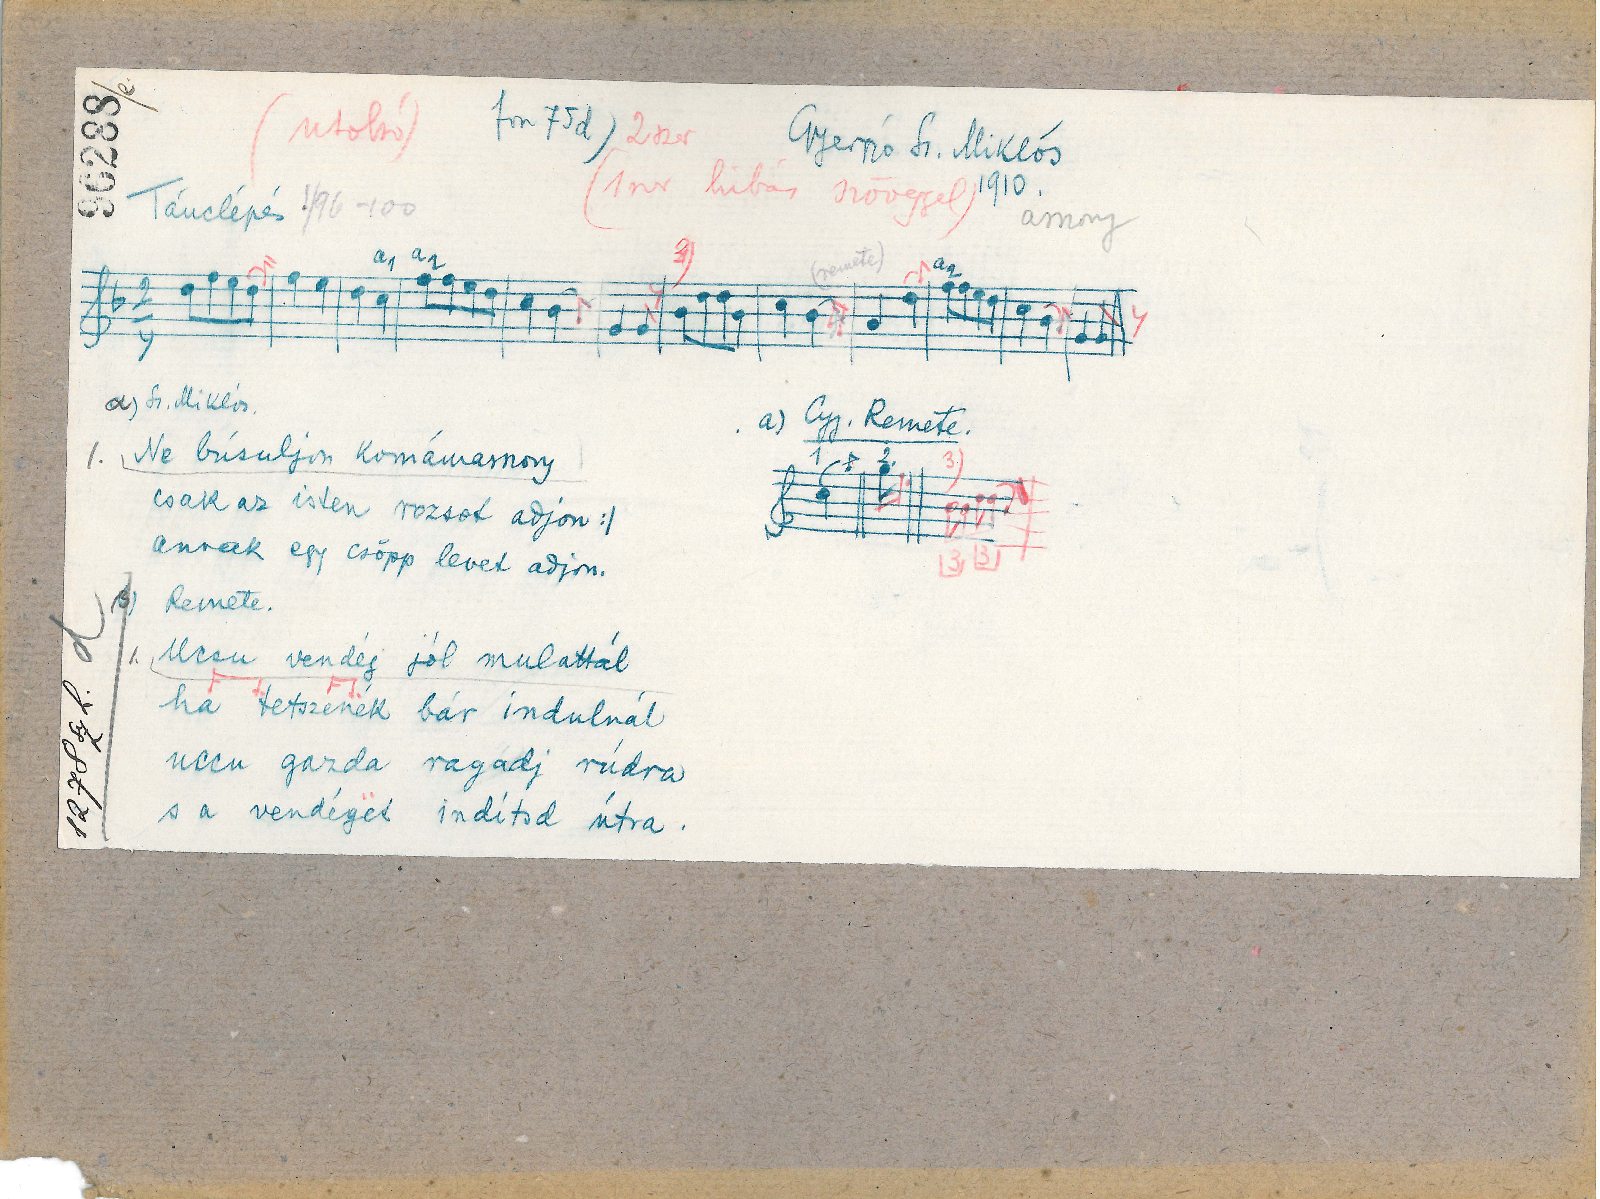 96288/e
(utolsó) fon 75d) 2szer Gyergyó Sz. Miklós
(1szer hibás szöveggel) 1910.
Tánclépés 96-100 asszony
a1 a2 2) (remete) a2
2
4
a) Sz. Miklós.
1. Ne búsuljon komámasszony
csak az isten rozsot adjon :/
annak egy csöpp levet adjon.
b) Remete.
1. Uccu vendég jól mulattál
ha tetszenék bár indulnál
uccu gazda ragadj rúdra
s a vendéget indítsd útra.
a) Gyj. Remete.
1 2. 3.)
3 3
1278
d